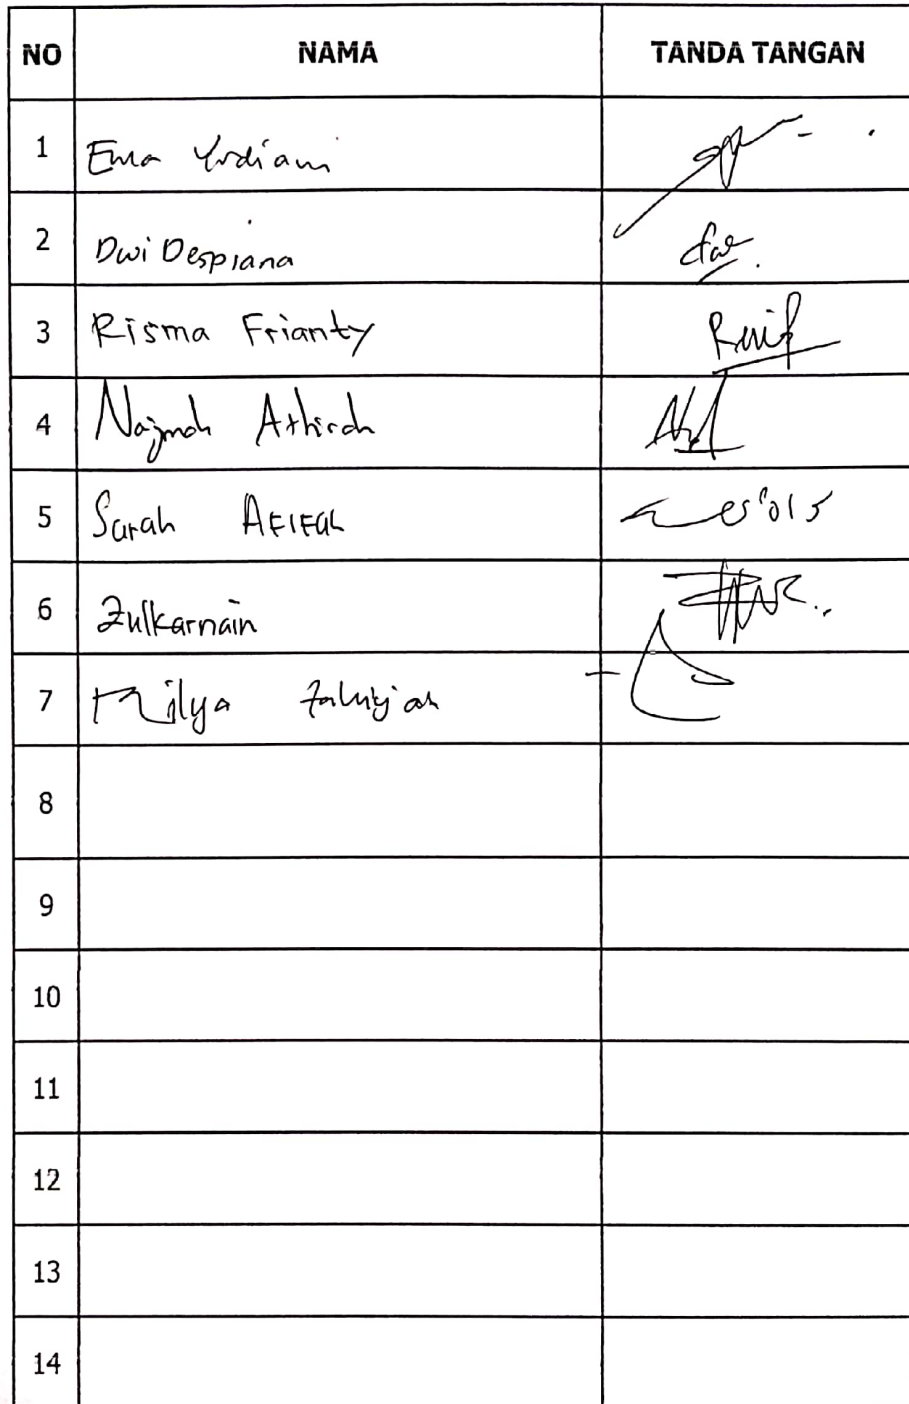 NO NAMA TANDA TANGAN
1 Erna Yudiani
2 Dwi Despiana
3 Risma Frianty
4 Najmah Athirah
5 Sarah AFIFah
6 Zulkarnain
7 Milya
8
9
10
11
12
13
14